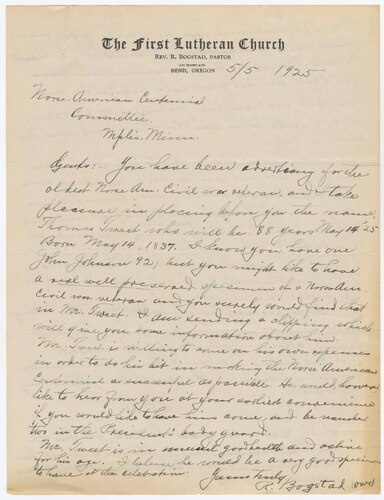 The First Lutheran Church
REV. R. BOGSTAD, PASTOR
BEND, OREGON 5/5 1925
Norse-American Centennial
Committee,
Mplis. Minn.
Gents:- You have been advertising for the
oldest Norse Am. Civil war veteran, and I take
pleasure in placing before you the name,
Thomas Tweet who will be 88 years May 14 '25
Born May 14, 1837. I know you have one
John Johnson 92, but you might like to have
a real well preserved specimen of a Norse Am.
Civil war veteran and you surely would find that
in Mr. Tweet. I am sending a clipping which
will give you some information about him.
Mr. Tweet is willing to come on his own expenses
in order to do his bit in making the Norse American
Centennial as successful as possible. He would, however
like to hear from you at your earliest convenience
if you would like to have him come, and be number
two in the President's body guard.
Mr. Tweet is in unusual good health and active
for his age. I believe he would be a very good specimen
to have at the celebration.
Yours truly
R. Bogstad (over)